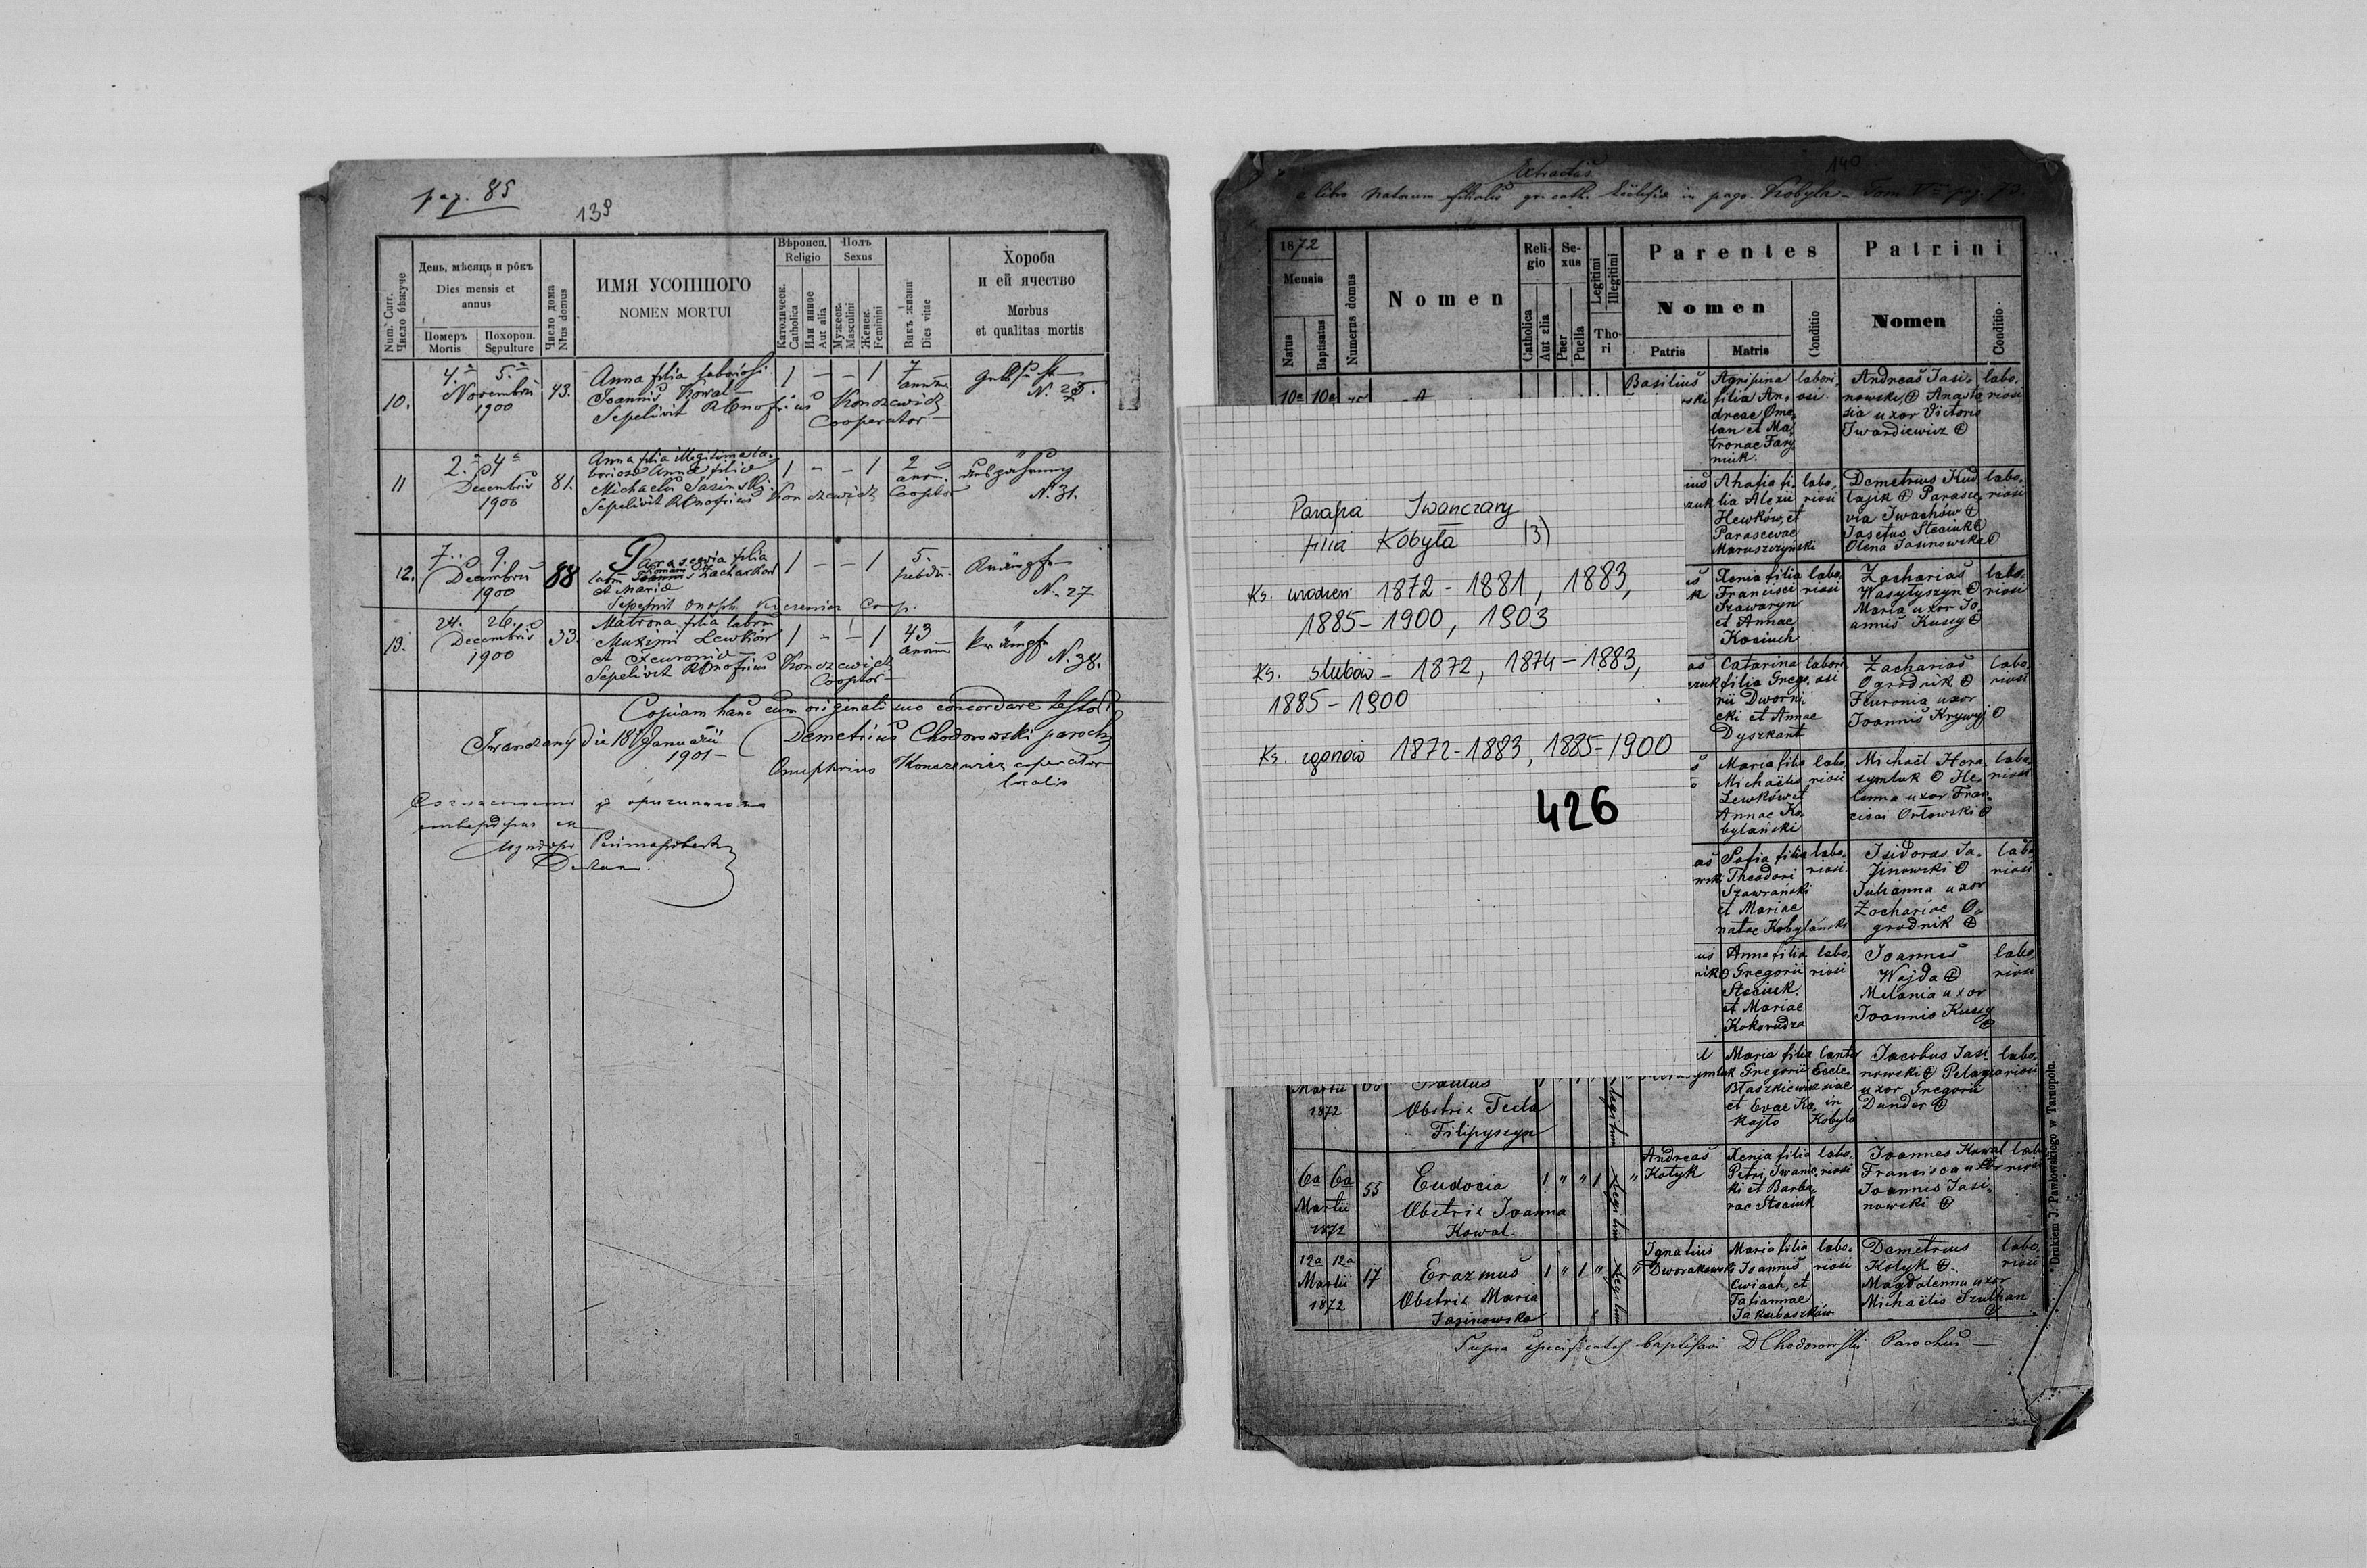 pag. 85
139
Num. Curr.
Число бѣжуче
День, мѣсяць и рôкъ
Dies mensis et
annus
Померъ
Mortis
Похорон.
Sepulture
Число дома
Nrus domus
ИМЯ УСОПШОГО
NOMEN MORTUI
Вѣроисп.
Religio
Католическ.
Catholica
Или инное
Aut alia
Полъ
Sexus
Мужеск.
Masculini
Женск.
Feminini
Вѣкъ жизни
Dies vitae
Хороба
и ей ячество
Morbus
et qualitas mortis
10.
4. 5.
Novembris
1900
43.
Anna filia laboriosi
Joannis Kowal
Sepelivit Onofrius Konczewicz
Cooperator
1 – – 1
7
annor.
11
2. 4
Decembris
1900
81.
Anna filia illegitima la-
boriosa Anna filia
Michaelis Jasinski
Sepelivit Onofrius Konczewicz Cooptor
1 – – 1
2
annor.
N. 31.
12.
7. 9.
Decembris
1900
88
Parascevia filia
Zacharków
et Maria
1 – – 1
5.
N. 27
13.
24. 26.
Decembris
1900
33.
Matrona filia labrm
Maximi Lewków
et Xeuronia
Sepelivit Onofrius Konczewicz
Cooptor
1 – – 1
43
annor.
N. 38.
Copiam hanc cum originali suo concordare testor
Iwanczany die 18 Januarii
1901
Demetrius Chodorowski paroch
Onuphrius Konczewicz cooperator
localis
140
Extractus
e libro Natorum filialis gr. cath. Ecclesiæ in pago Kobyla – Tom VI pag. 73.
1872
Mensis
Natus
Baptisatus
Numerus domus
Nomen
Religio
Catholica
Aut alia
Sexus
Puer
Puella
Legitimi
Illegitimi
Thori
Parentes
Nomen
Patris
Matris
Conditio
Patrini
Nomen
Conditio
10a 10a
Basilius
Agripina
filia An-
dreae Ome-
lan et Ma-
tronae Fary
niuk.
labori-
osi
Andreas Jasi-
nowski, ⊕ Anasta
sia uxor Victoris
Twardiewicz ⊕
labo-
riosi
Ahafia fi-
lia Alexii
Hewków, et
Parascevae
Maruszczyński
labo-
riosi
Demetrius Kud
lajik ⊕ Parasce
via Iwachów ⊕
Josefus Steciuk ⊕
Olena Jasinowska ⊕
labo-
riosi
Xenia filia
Francisci
Szawaryn
et Annae
Kociuch
labo-
riosi
Zacharias
Wasylyszyn ⊕
Maria uxor Jo-
annis Kusey ⊕
labo-
riosi
Catarina
filia Grego-
rii Dworni
cki et Annae
Dyszkant
labori-
osi
Zacharias
Ogrodnik ⊕
Feuronia uxor
Joannis Krywyj ⊕
labo-
riosi
Maria filia
Michaëlis
Lewków et
Annae Ko-
bylański
labo-
riosi
Michaël Hera-
symluk ⊕ He-
lenna uxor Fran-
cisci Orłowski ⊕
labo-
riosi
Sofia filia
Theodori
Szawrański
et Mariae
natae Kobylański
labo-
riosi.
Isidoras Ja-
zinowski ⊕
Julianna uxor
Zachariae O-
grodnik ⊕
labo-
riosi
Anna filia
Gregorii
Steciuk.
et Mariae
Kokorudza
labo-
riosi
Joannes
Wajda ⊕
Melania uxor
Joannis Kusey
⊕
labo-
riosi
Martii
1872
Paulus
Obstrix Tecla
Filipyszyn
Maria filia
Gregorii
Błaszkiewicz
et Evae Ko-
kajło
Cantor
Eccle-
siae
in
Kobyla
Jacobus Jasi-
nowski ⊕ Pelagia
uxor Gregorii
Dander ⊕
labo-
riosi
6a 6a
Martii
1872
55
Eudocia
Obstrix Joanna
Kowal.
1 " " 1
Andreas
Kotyk
Xenia filia
Petri Iwanc
ki et Barba-
rae Steciuk
labo-
riosi
Joannes Kowal
Francisca uxor
Joannis Jasi-
nowski ⊕
labo-
riosi
12a 12a
Martii
1872
17
Erazmus
Obstrix Maria
Jasinowska
1 " 1 "
Ignatius
Dworakowski
Maria filia
Joannis
Cwiach, et
Tatiannae
Jakubaszków
labo-
riosi
Demetrius
Kotyk ⊕.
Magdalenna uxor
Michaëlis Szulhan
⊕
labo-
riosi
Supra specificatos baptisavi DChodorowski Parochus
Drukiem J. Pawłowskiego w Tarnopolu.
Parafia Iwanczany
filia Kobyła (3)
Ks. urodzeń 1872 - 1881, 1883,
1885 - 1900, 1903
Ks. slubów - 1872, 1874 - 1883,
1885 - 1900
Ks. zgonów 1872 - 1883, 1885 - 1900
426